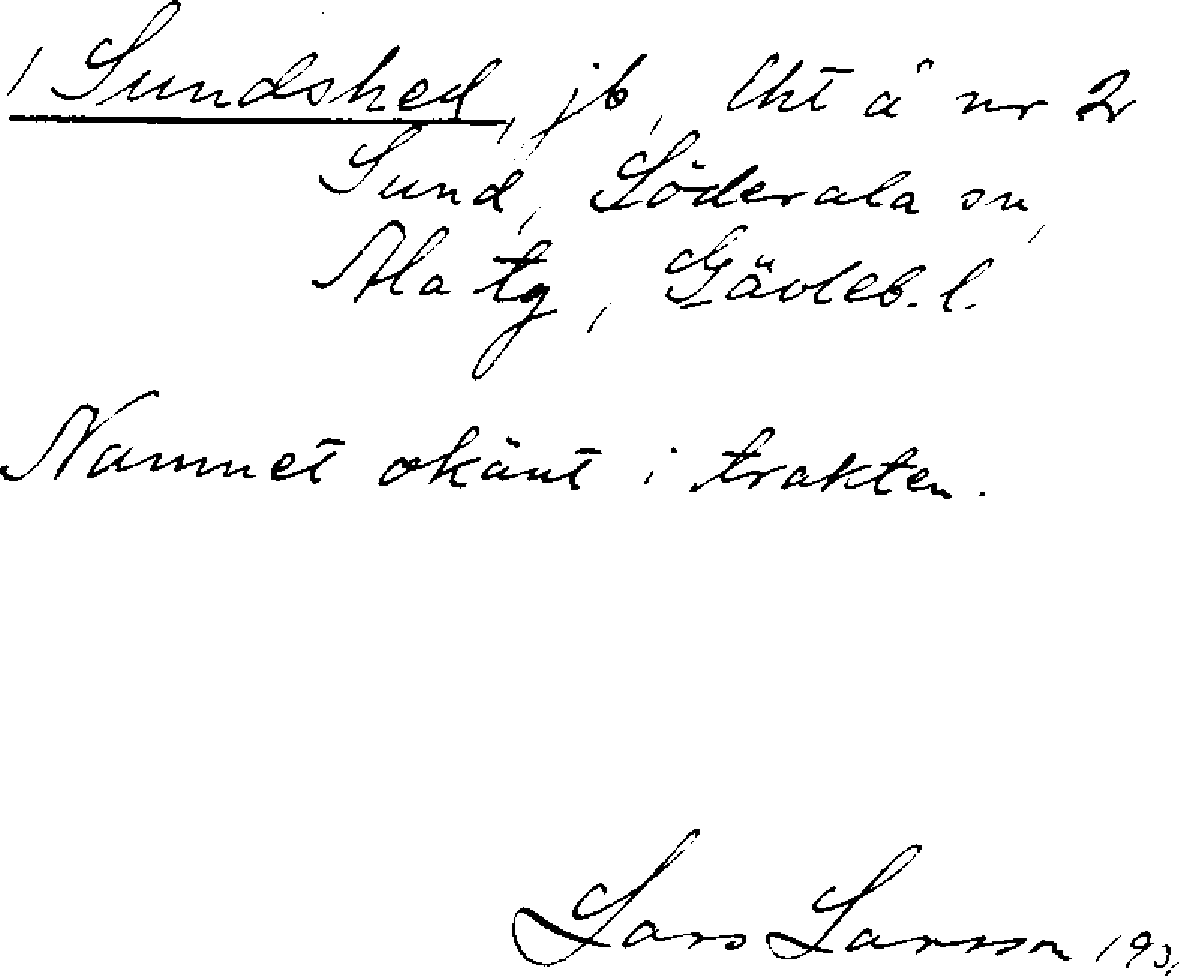 Sundshed, jb, lht å nr 2
Sund, Söderala sn,
Ala tg, Gävleb. l.
Namnet okänt i trakten.
Lars Larsson 193